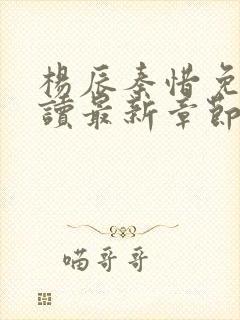 楊辰秦惜免
讀最新章節
喵哥哥